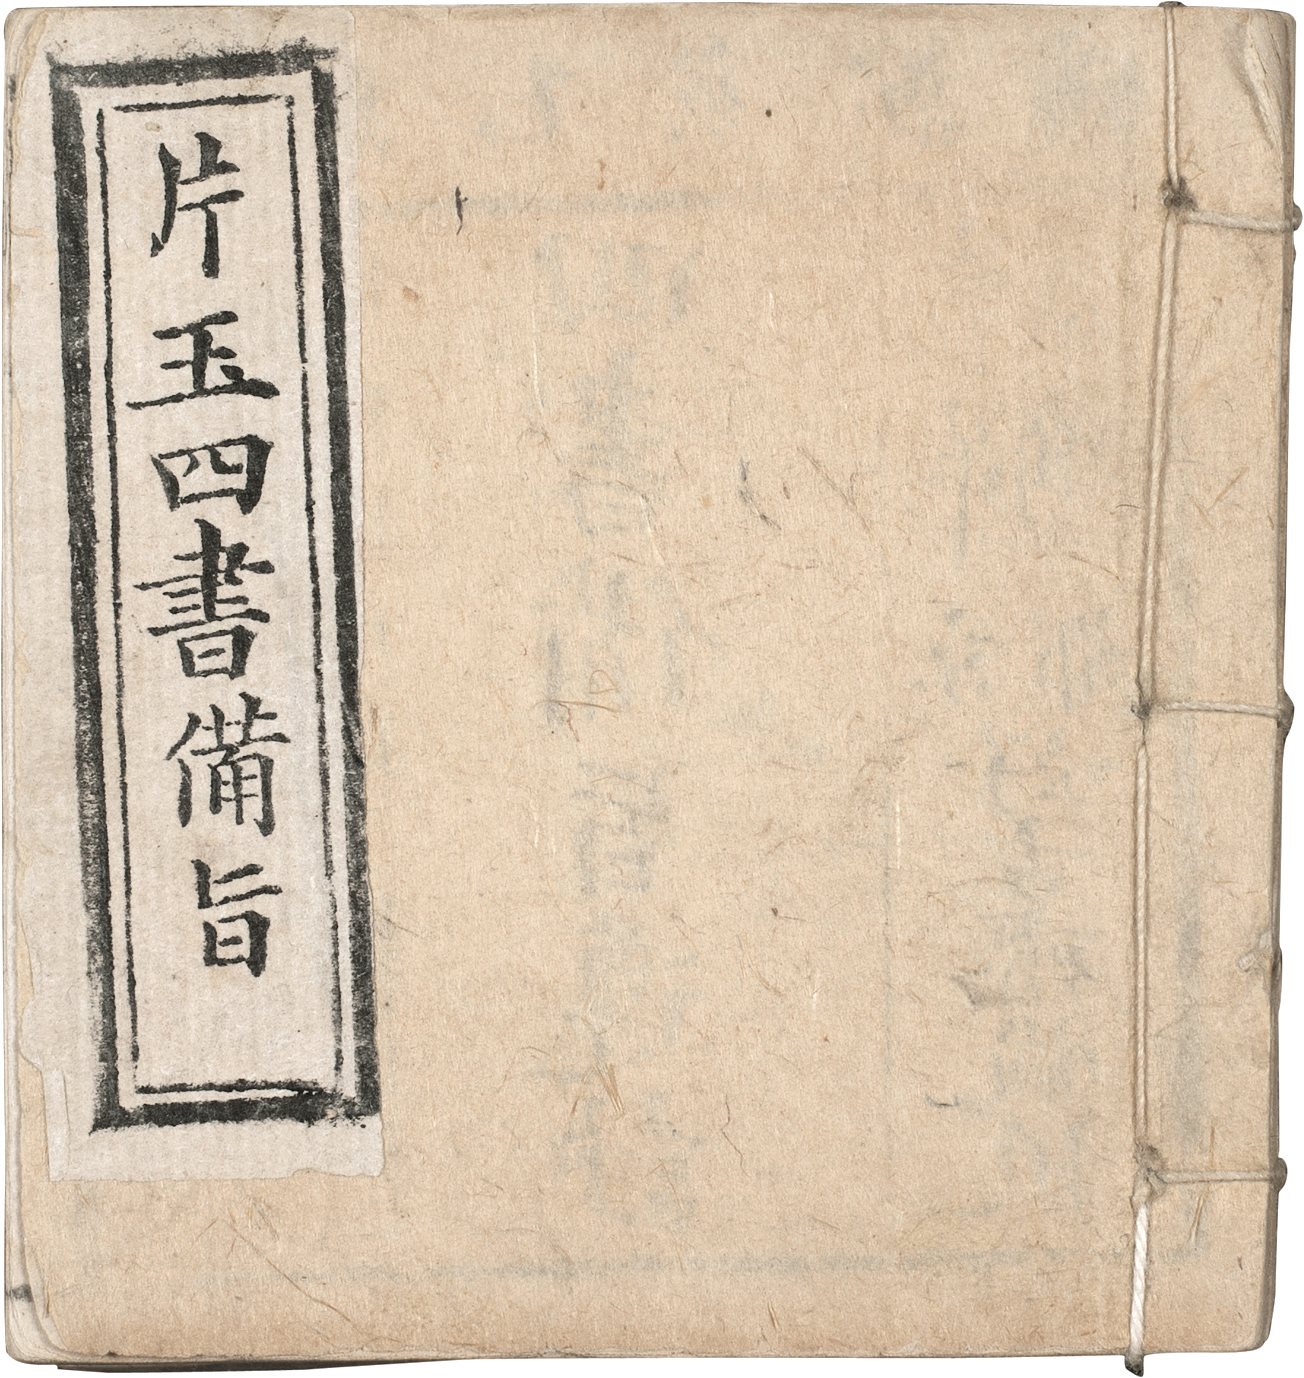 片玉四書備旨